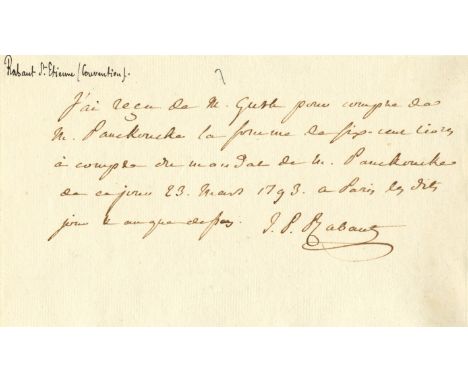 Rabaut St Etienne (Convention).
J'ai reçu de M. pour compte de
M. Panckoucke la somme de six-cent livres
à compte du mandat de M. Panckoucke
de ce jour 23. Mars 1793. a Paris les dits
jour & an que dessus. J. P. Rabaut